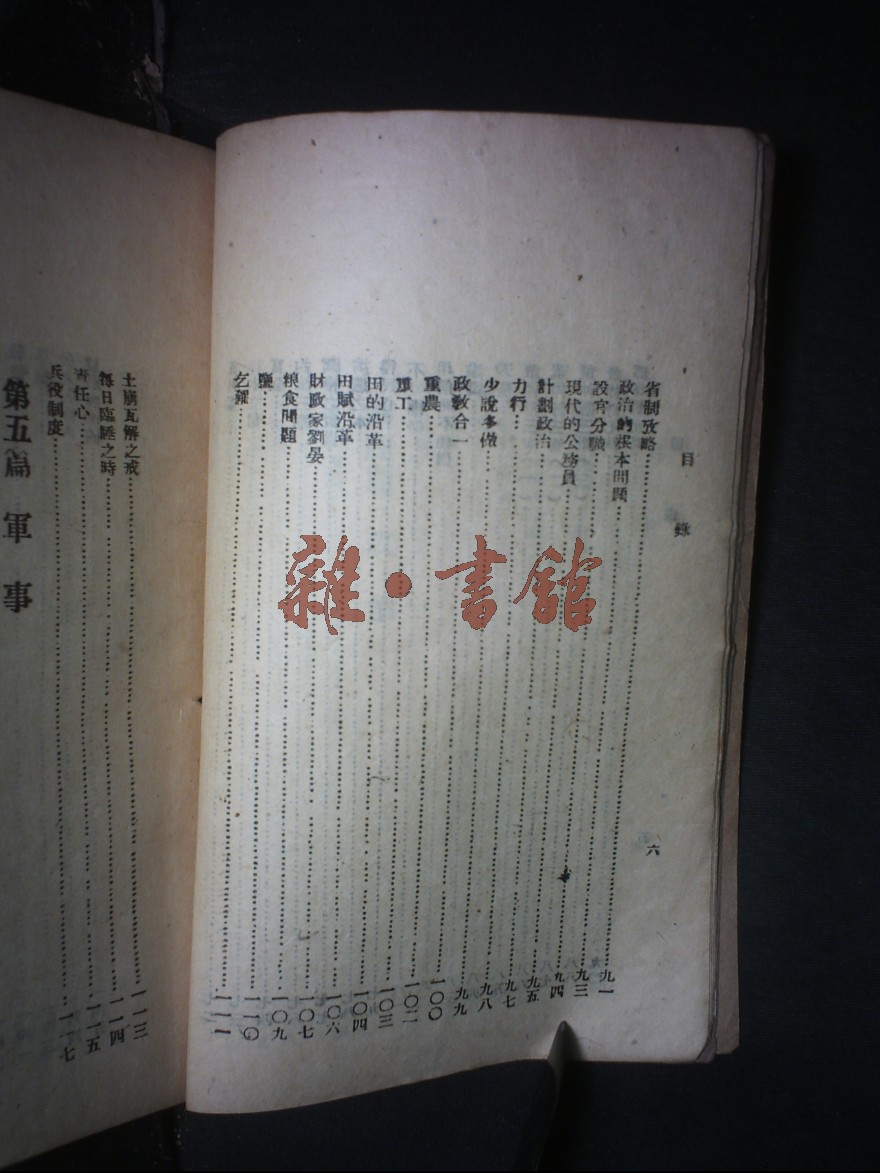 目錄 六
省制攷略……九一
政治的根本問題……九三
設官分職……九四
現代的公務員……九五
計劃政治……九七
力行……九八
少說多做……九九
政教合一……一〇〇
重農……一〇二
重工……一〇三
田的沿革……一〇四
田賦沿革……一〇六
財政家劉晏……一〇七
糧食問題……一〇九
鹽……一一〇
乞糴……一一一
土崩瓦解之戒……一一三
每日臨睡之時……一一四
責任心……一一五
兵役制度……一一七
第五篇 軍事
雜·書館